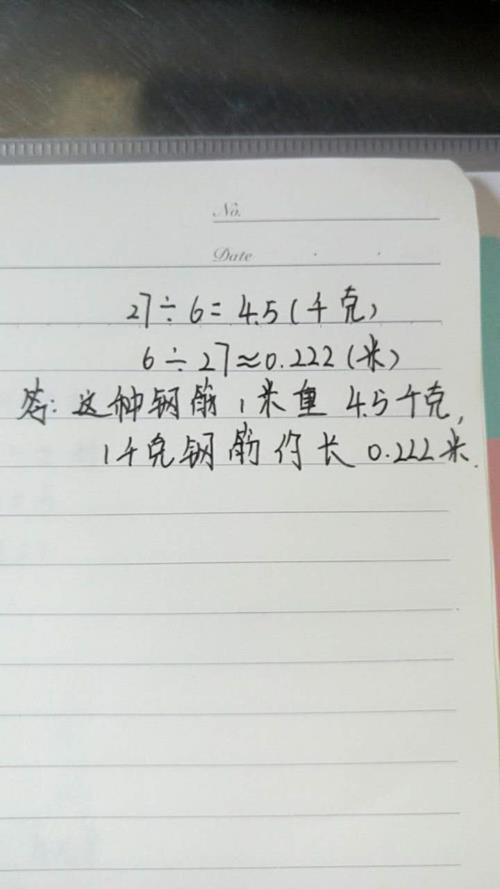 No.
Date
27÷6=4.5(千克)
6÷27≈0.222(米)
答:这种钢筋1米重4.5千克,
1千克钢筋约长0.222米.